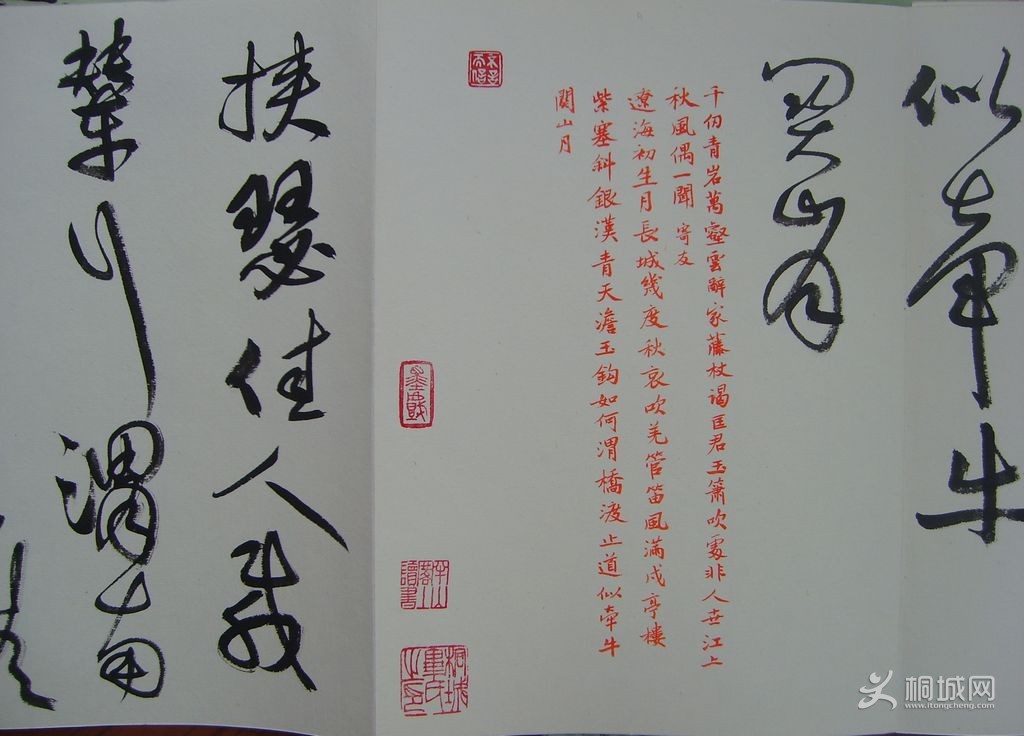 似牽牛
關山月
千仞青岩萬壑雲辭家藤杖謁匡君玉簫吹處非人世江上
秋風偶一聞 寄友
遼海初生月長城幾度秋哀吹羌管笛風滿戍亭樓
紫塞斜銀漢青天澹玉鈎如何渭橋渡止道似牽牛
關山月
挾瑟佳人
輦行渭南
桐城网
www.itongcheng.com